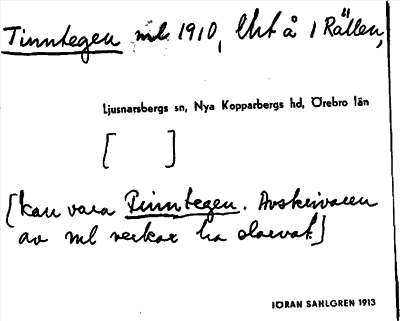 Tinntegen ml 1910, Urt å 1 Rällen,
Ljusnarsbergs sn, Nya Kopparbergs hd, Örebro län
[ ]
[kan vara Finntegen. Avskrivaren
av ml verkar ha slarvat.]
JÖRAN SAHLGREN 1913